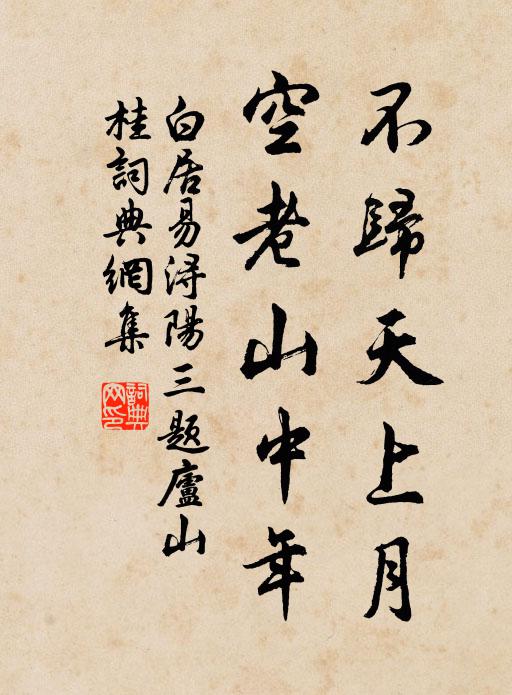 不歸天上月
空老山中年
白居易浔陽三题廬山
桂詞典網集
詞典网印